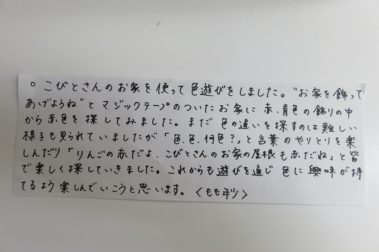 ○ こびとさんのお家を使って色遊びをしました。"お家を飾って
あげようね"とマジックテープのついたお家に赤、青色の飾りの中
から赤色を探してみました。まだ色の違いを探すのは難しい
様子も見られていましたが「色、色、何色?」と言葉のやりとりを楽
しんだり「りんごの赤だよ、こびとさんのお家の屋根も赤だね」と皆
で楽しく探していきました。これからも遊びを通じ色に興味が持
てるよう楽しんでいこうと思います。〈もも